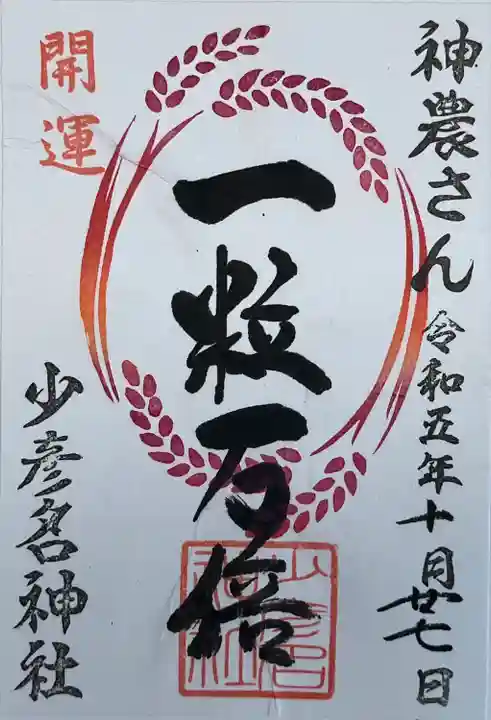 神農さん
令和五年十月廿七日
一粒万倍
開運
少彦名神社
少彦名神社